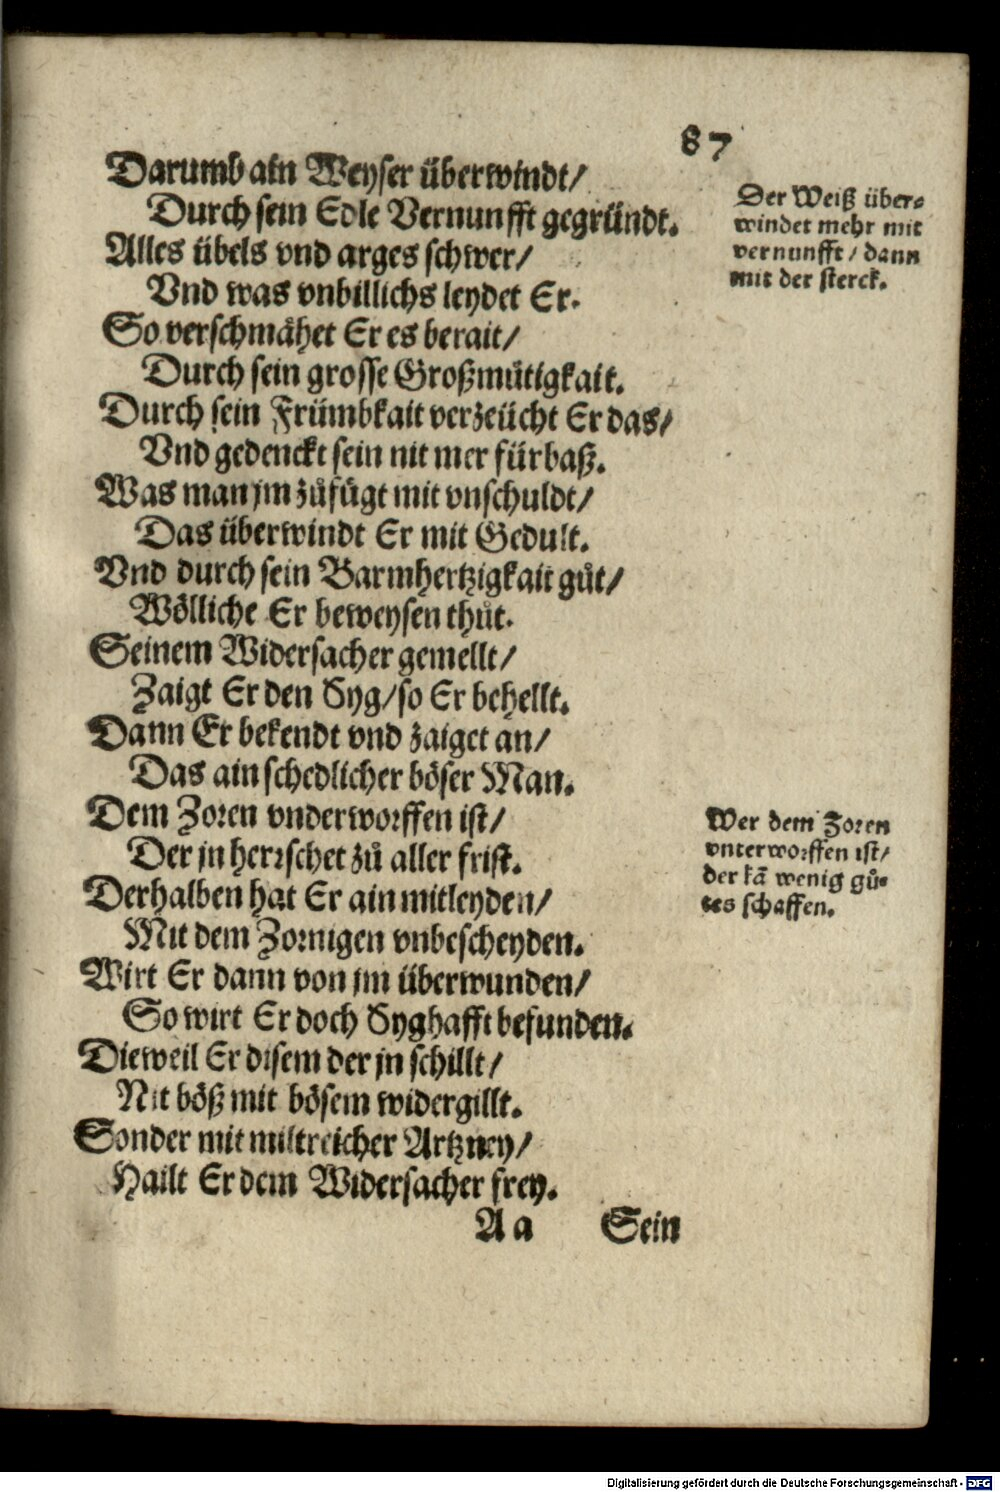 87
Darumb ain Weyser überwindt/
Durch sein Edle Vernunfft gegründt.
Alles übels vnd arges schwer/
Vnd was vnbillichs leydet Er.
So verschmåhet Er es berait/
Durch sein grosse Großmůtigkait.
Durch sein Frümbkait verzeücht Er das/
Vnd gedenckt sein nit mer fürbaß.
Was man jm zůfügt mit vnschuldt/
Das überwindt Er mit Gedult.
Vnd durch sein Barmhertzigkait gůt/
Wölliche Er beweysen thůt.
Seinem Widersacher gemellt/
Zaigt Er den Syg/so Er behellt.
Dann Er bekendt vnd zaiget an/
Das ain schedlicher böser Man.
Dem Zoren vnderworffen ist/
Der jn herrschet zů aller frist.
Derhalben hat Er ain mitleyden/
Mit dem Zornigen vnbescheyden.
Wirt Er dann von jm überwunden/
So wirt Er doch Syghafft befunden.
Dieweil Er disem der jn schillt/
Nit böß mit bösem widergillt.
Sonder mit miltreicher Artzney/
Hailt Er dem Widersacher frey.
Der Weiß über-
windet mehr mit
vernunfft/dann
mit der sterck.
Wer dem Zoren
vnterworffen ist/
der kā wenig gů-
tes schaffen.
Aa Sein
Digitalisierung gefördert durch die Deutsche Forschungsgemeinschaft - DFG